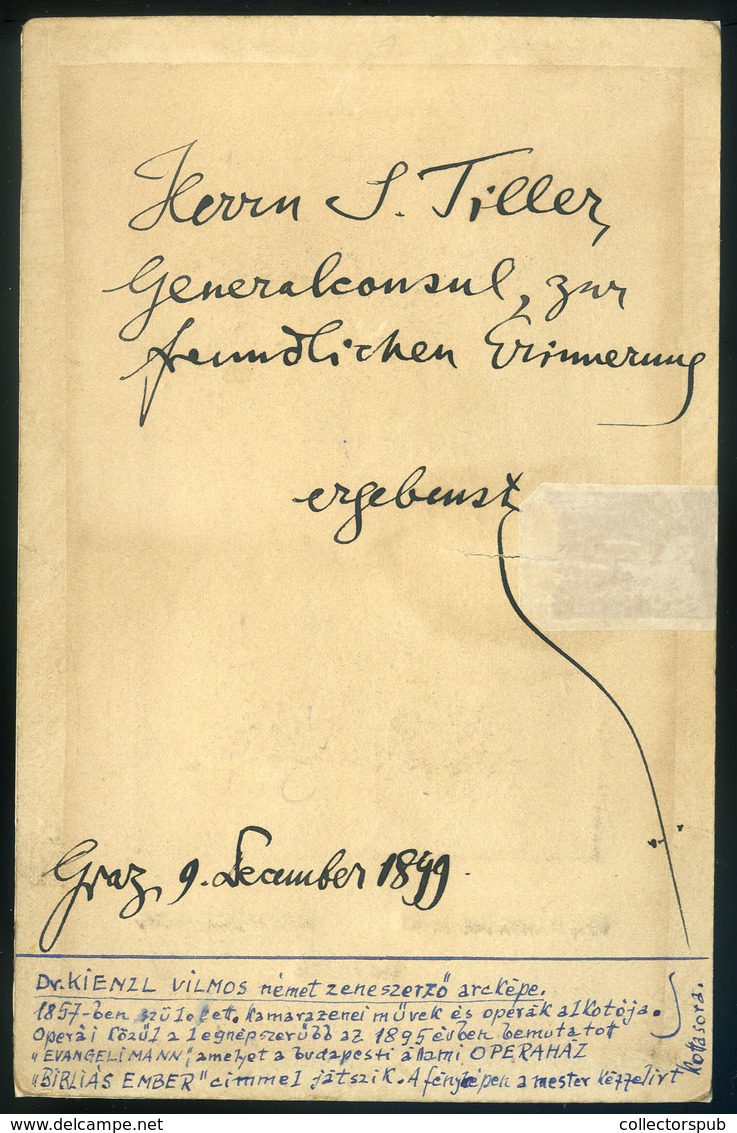 Herrn S. Tiller,
Generalconsul, zur
freundlichen Erinnerung
ergebenst
Graz, 9. December 1899.
Dr. KIENZL VILMOS német zeneszerző arcképe.
1857-ben született. Kamarazenei művek és operák alkotója.
Operái közül a legnépszerűbb az 1895 évben bemutatot
„EVANGELIMANN", amelyet a budapesti állami OPERAHÁZ
„BIBLIÁS EMBER" címmel játszik. A fényképen a mester kézzelirt
kottasora.
collectorspub